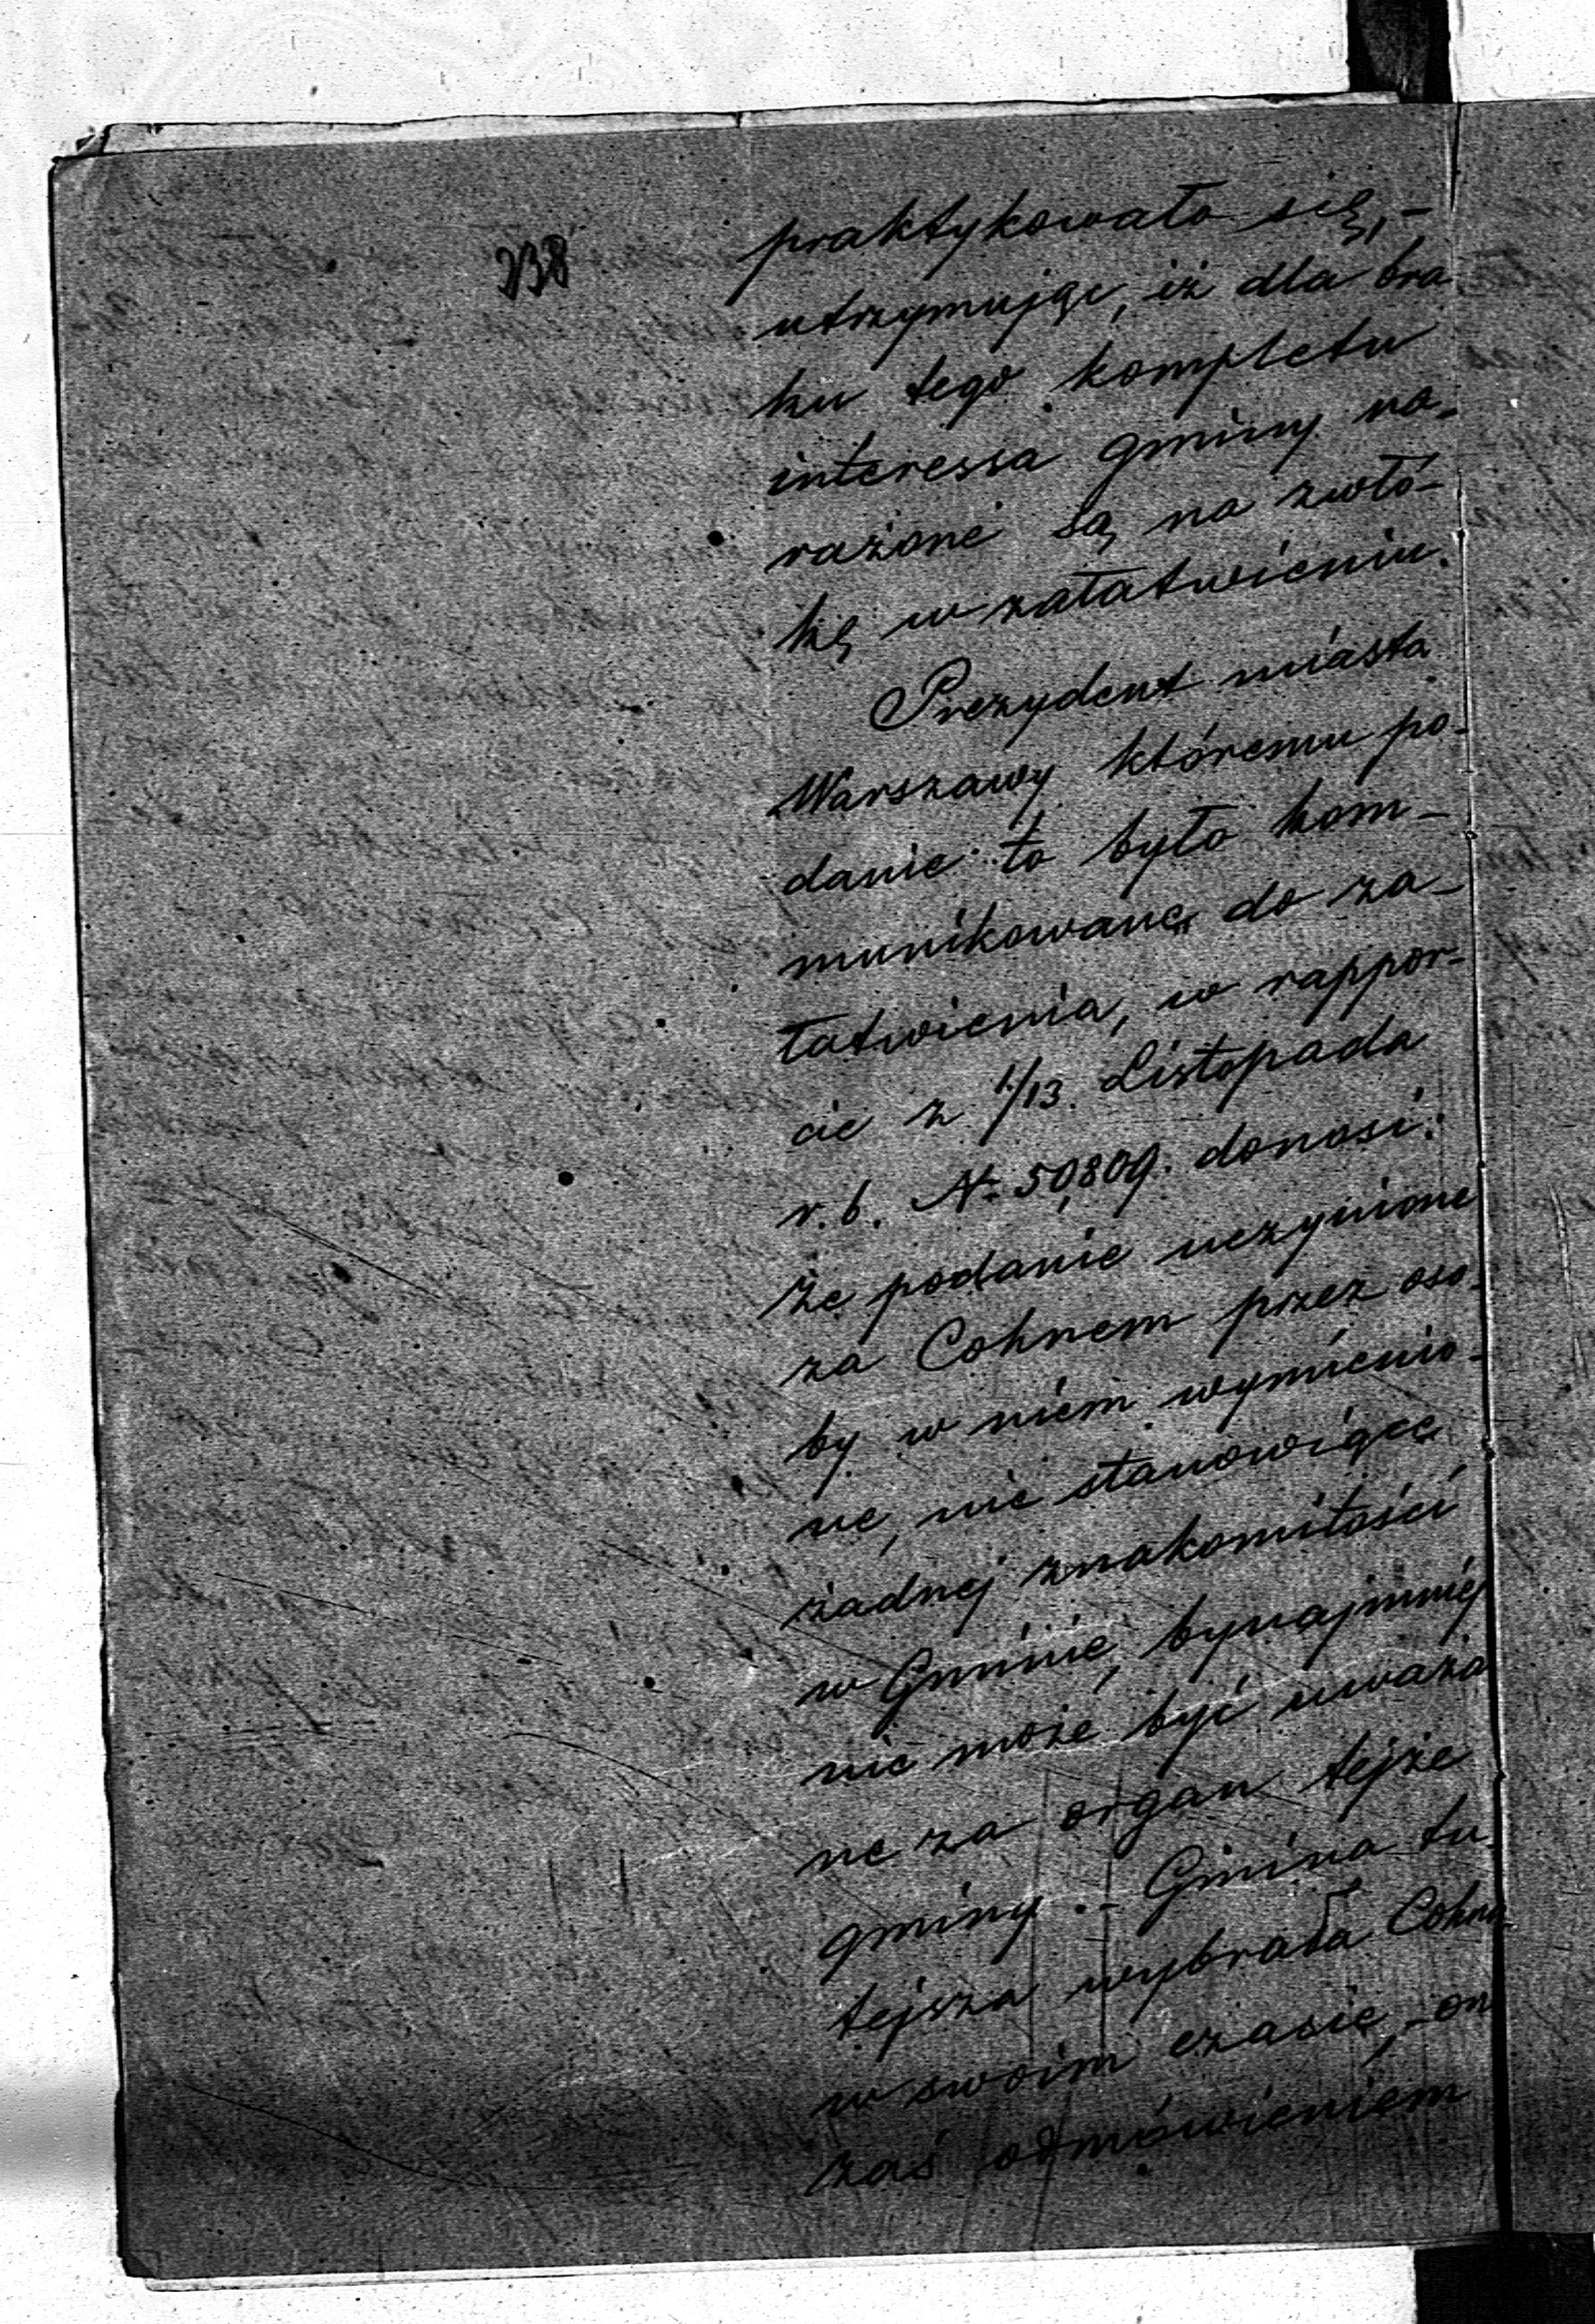 238
praktykowało się,-
utrzymując, iż dla bra
ku tego kompletu
interessa gminy na-
rażone są na zwło-
kę w załatwieniu.
Prezydent miasta
Warszawy któremu po-
danie to było kom-
munikowane do za-
łatwienia, w rappor-
cie z 1/13. Listopada
r.b. N. 50,809. donosi:
że podanie uczynione
za Cohnem przez oso-
by w niém wymienio-
ne, nie stanowiące
żadnej znakomitości
w Gminie, bynajmniéj
nie może być uważa
ne za organ tejże
gminy.- Gmina tu-
tejsza wybrała Cohna
w swoim czasie,- on
zaś odmówieniem